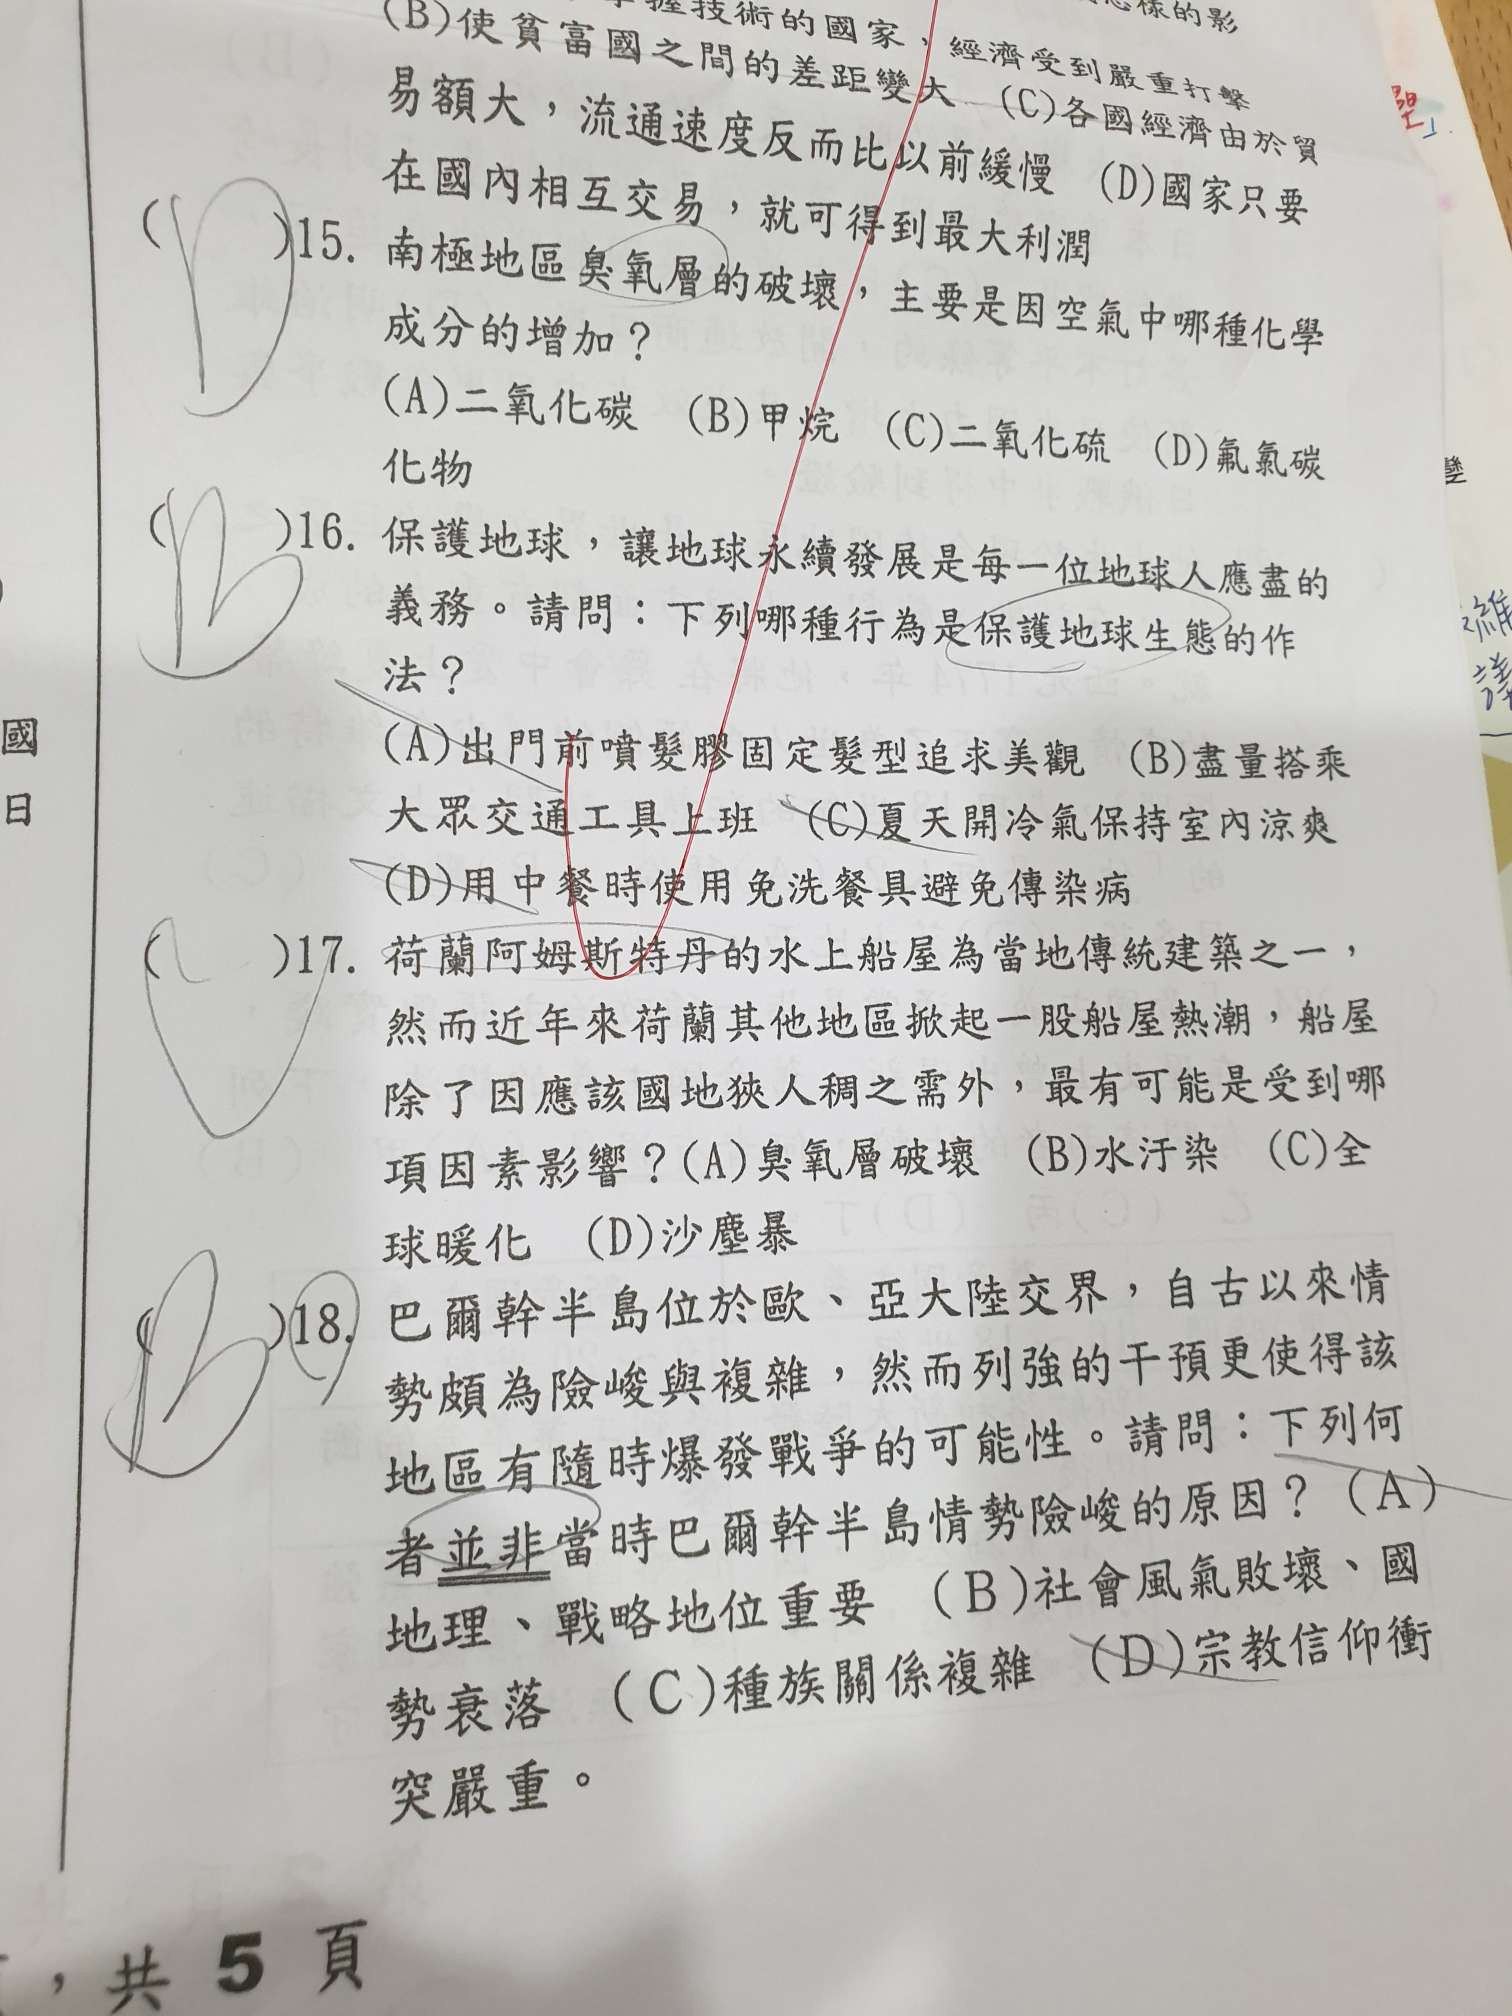 掌握技術的國家,經濟受到嚴重打擊
(B)使貧富國之間的差距變大 (C)各國經濟由於貿
易額大,流通速度反而比以前緩慢 (D)國家只要
在國內相互交易,就可得到最大利潤
(D)15. 南極地區臭氧層的破壞,主要是因空氣中哪種化學
成分的增加?
(A)二氧化碳 (B)甲烷 (C)二氧化硫 (D)氟氯碳
化物
(B)16. 保護地球,讓地球永續發展是每一位地球人應盡的
義務。請問:下列哪種行為是保護地球生態的作
法?
(A)出門前噴髮膠固定髮型追求美觀 (B)盡量搭乘
大眾交通工具上班 (C)夏天開冷氣保持室內涼爽
(D)用中餐時使用免洗餐具避免傳染病
( )17. 荷蘭阿姆斯特丹的水上船屋為當地傳統建築之一,
然而近年來荷蘭其他地區掀起一股船屋熱潮,船屋
除了因應該國地狹人稠之需外,最有可能是受到哪
項因素影響?(A)臭氧層破壞 (B)水汙染 (C)全
球暖化 (D)沙塵暴
(B)18. 巴爾幹半島位於歐、亞大陸交界,自古以來情
勢頗為險峻與複雜,然而列強的干預更使得該
地區有隨時爆發戰爭的可能性。請問:下列何
者並非當時巴爾幹半島情勢險峻的原因?(A)
地理、戰略地位重要 (B)社會風氣敗壞、國
勢衰落 (C)種族關係複雜 (D)宗教信仰衝
突嚴重。
國
日
,共 5 頁